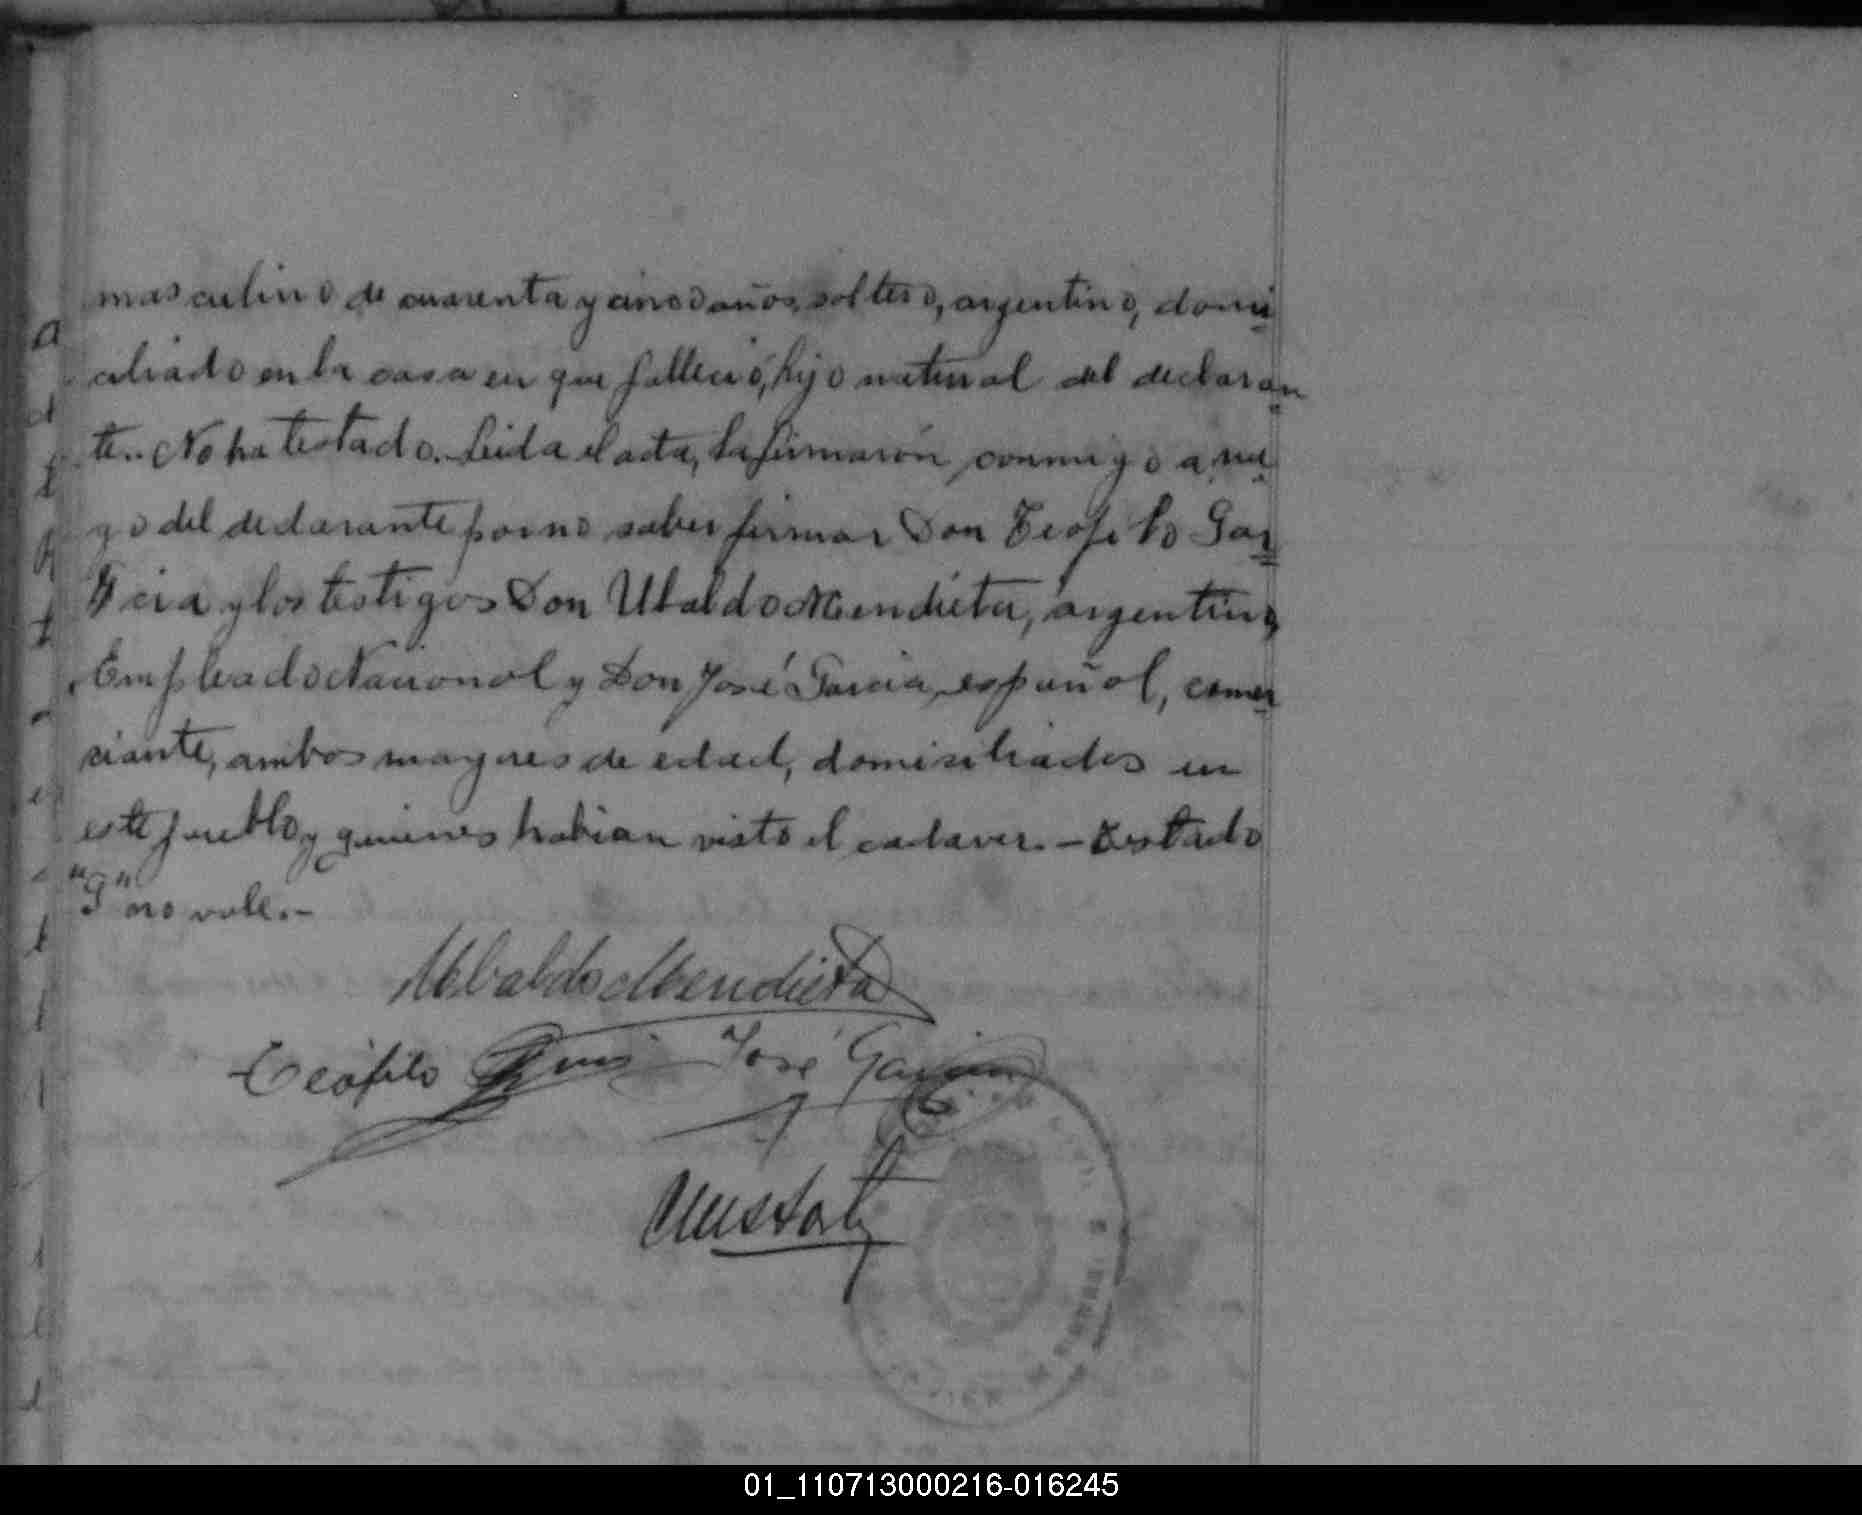 masculino de cuarenta y cinco años, soltero, argentino, domi
ciliado en la casa en que falleció, hijo natural del declaran
te.. No ha testado. Leida el acta, la firmarón conmigo a rue
go del declarante por no saber firmar Don Teofilo Gar
cia y los testigos Don Ubaldo Mendieta, argentino,
Empleado Nacional y Don José Garcia, español, comer
ciante, ambos mayores de edad, domisiliados en
este pueblo, y quienes habian visto el cadaver. – Testado
"G" no vale. –
Ubaldo Mendieta
Teófilo José Garcia
01_110713000216-016245